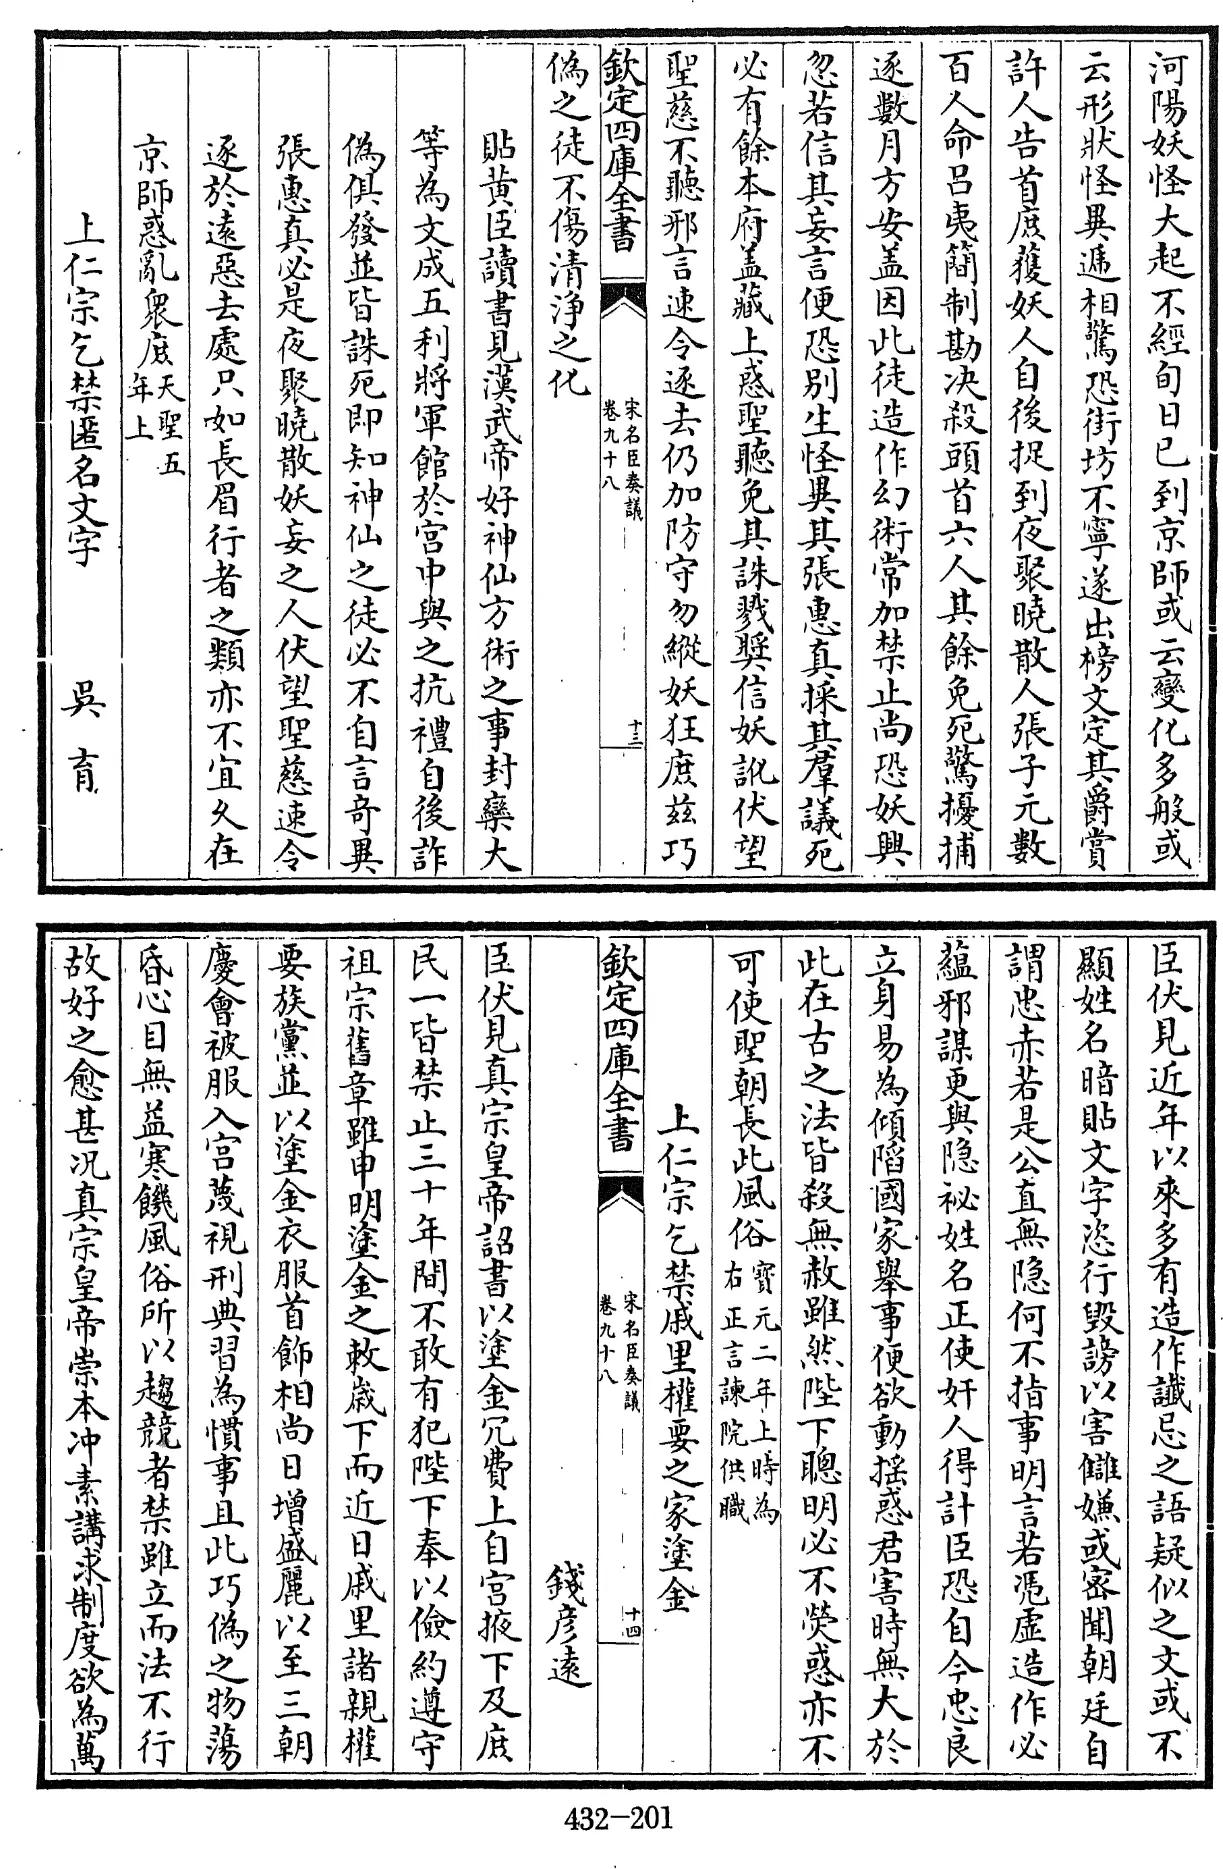 河陽妖怪大起不經旬日已到京師或云變化多般或
云形狀怪異遞相驚恐街坊不寧遂出榜文定其爵賞
許人告首庶獲妖人自後捉到夜聚曉散人張子元數
百人命呂夷簡制勘決殺頭首六人其餘免死驚擾捕
逐數月方安盖因此徒造作幻術常加禁止尚恐妖興
忽若信其妄言便恐别生怪異其張惠真採其羣議死
必有餘本府盖藏上惑聖聽免其誅戮奬信妖訛伏望
聖慈不聽邪言速令逐去仍加防守勿縱妖狂庶兹巧
欽定四庫全書
宋名臣奏議
卷九十八
十三
偽之徒不傷清淨之化
貼黄臣讀書見漢武帝好神仙方術之事封欒大
等為文成五利將軍館於宮中與之抗禮自後詐
偽俱發並皆誅死即知神仙之徒必不自言奇異
張惠真必是夜聚曉散妖妄之人伏望聖慈速令
逐於遠惡去處只如長眉行者之類亦不宜久在
京師惑亂衆庶天聖五
年上
上仁宗乞禁匿名文字 吳育
臣伏見近年以來多有造作讖忌之語疑似之文或不
顯姓名暗貼文字恣行毀謗以害讎嫌或密聞朝廷自
謂忠赤若是公直無隐何不指事明言若憑虛造作必
蘊邪謀更與隐祕姓名正使奸人得計臣恐自今忠良
立身易為傾陷國家舉事便欲動揺惑君害時無大於
此在古之法皆殺無赦雖然陛下聰明必不熒惑亦不
可使聖朝長此風俗寶元二年上時為
右正言諫院供職
上仁宗乞禁戚里權要之家塗金
欽定四庫全書
宋名臣奏議
卷九十八
十四
錢彦遠
臣伏見真宗皇帝詔書以塗金冗費上自宮掖下及庶
民一皆禁止三十年間不敢有犯陛下奉以儉約遵守
祖宗舊章雖申明塗金之敕歲下而近日戚里諸親權
要族黨並以塗金衣服首飾相尚日增盛麗以至三朝
慶會被服入宮蔑視刑典習為慣事且此巧偽之物蕩
昏心目無益寒饑風俗所以趨競者禁雖立而法不行
故好之愈甚况真宗皇帝崇本冲素講求制度欲為萬
432-201